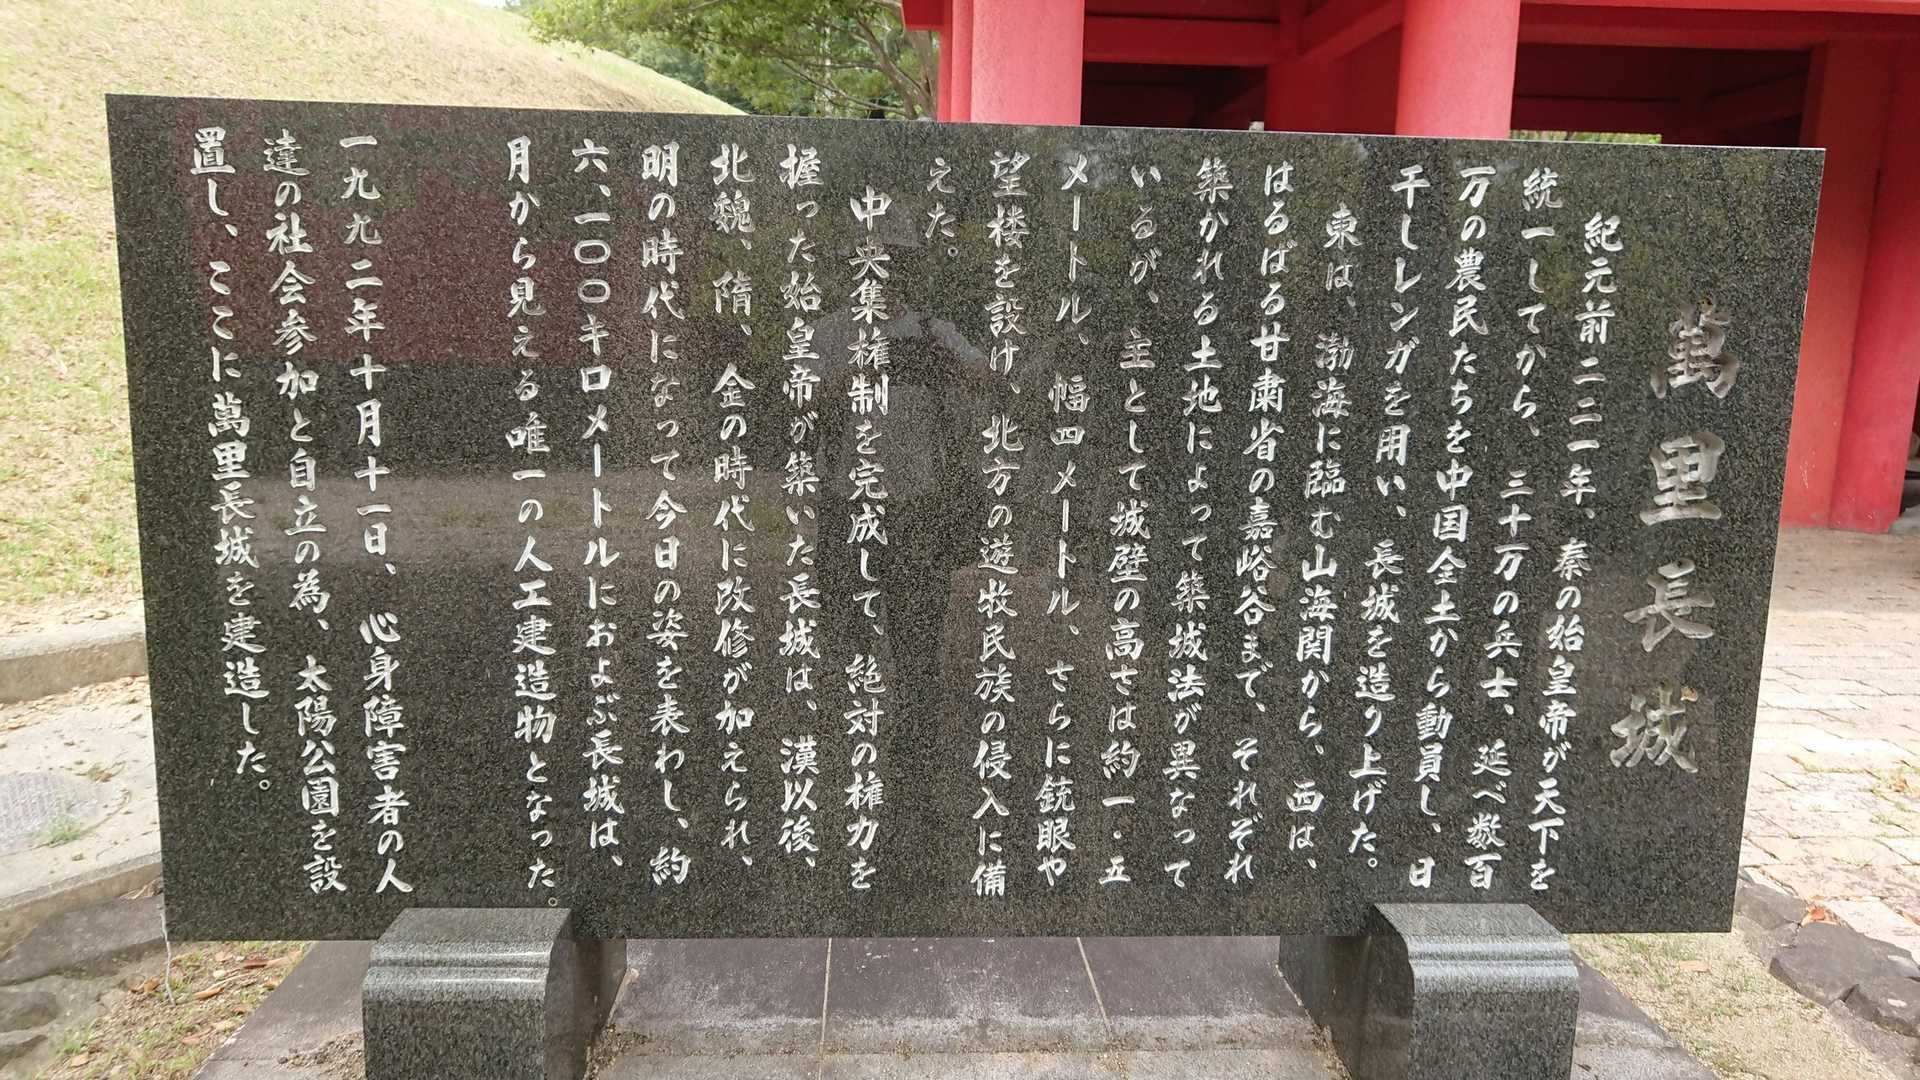 萬里長城
紀元前二二一年、秦の始皇帝が天下を
統一してから、三十万の兵士、延べ数百
万の農民たちを中国全土から動員し、日
干しレンガを用い、長城を造り上げた。
東は、渤海に臨む山海関から、西は、
はるばる甘粛省の嘉峪谷まで、それぞれ
築かれる土地によって築城法が異なって
いるが、主として城壁の高さは約一・五
メートル、幅四メートル、さらに銃眼や
望楼を設け、北方の遊牧民族の侵入に備
えた。
中央集権制を完成して、絶対の権力を
握った始皇帝が築いた長城は、漢以後、
北魏、隋、金の時代に改修が加えられ、
明の時代になって今日の姿を表わし、約
六、一〇〇キロメートルにおよぶ長城は、
月から見える唯一の人工建造物となった。
一九九二年十月十一日、心身障害者の人
達の社会参加と自立の為、太陽公園を設
置し、ここに萬里長城を建造した。